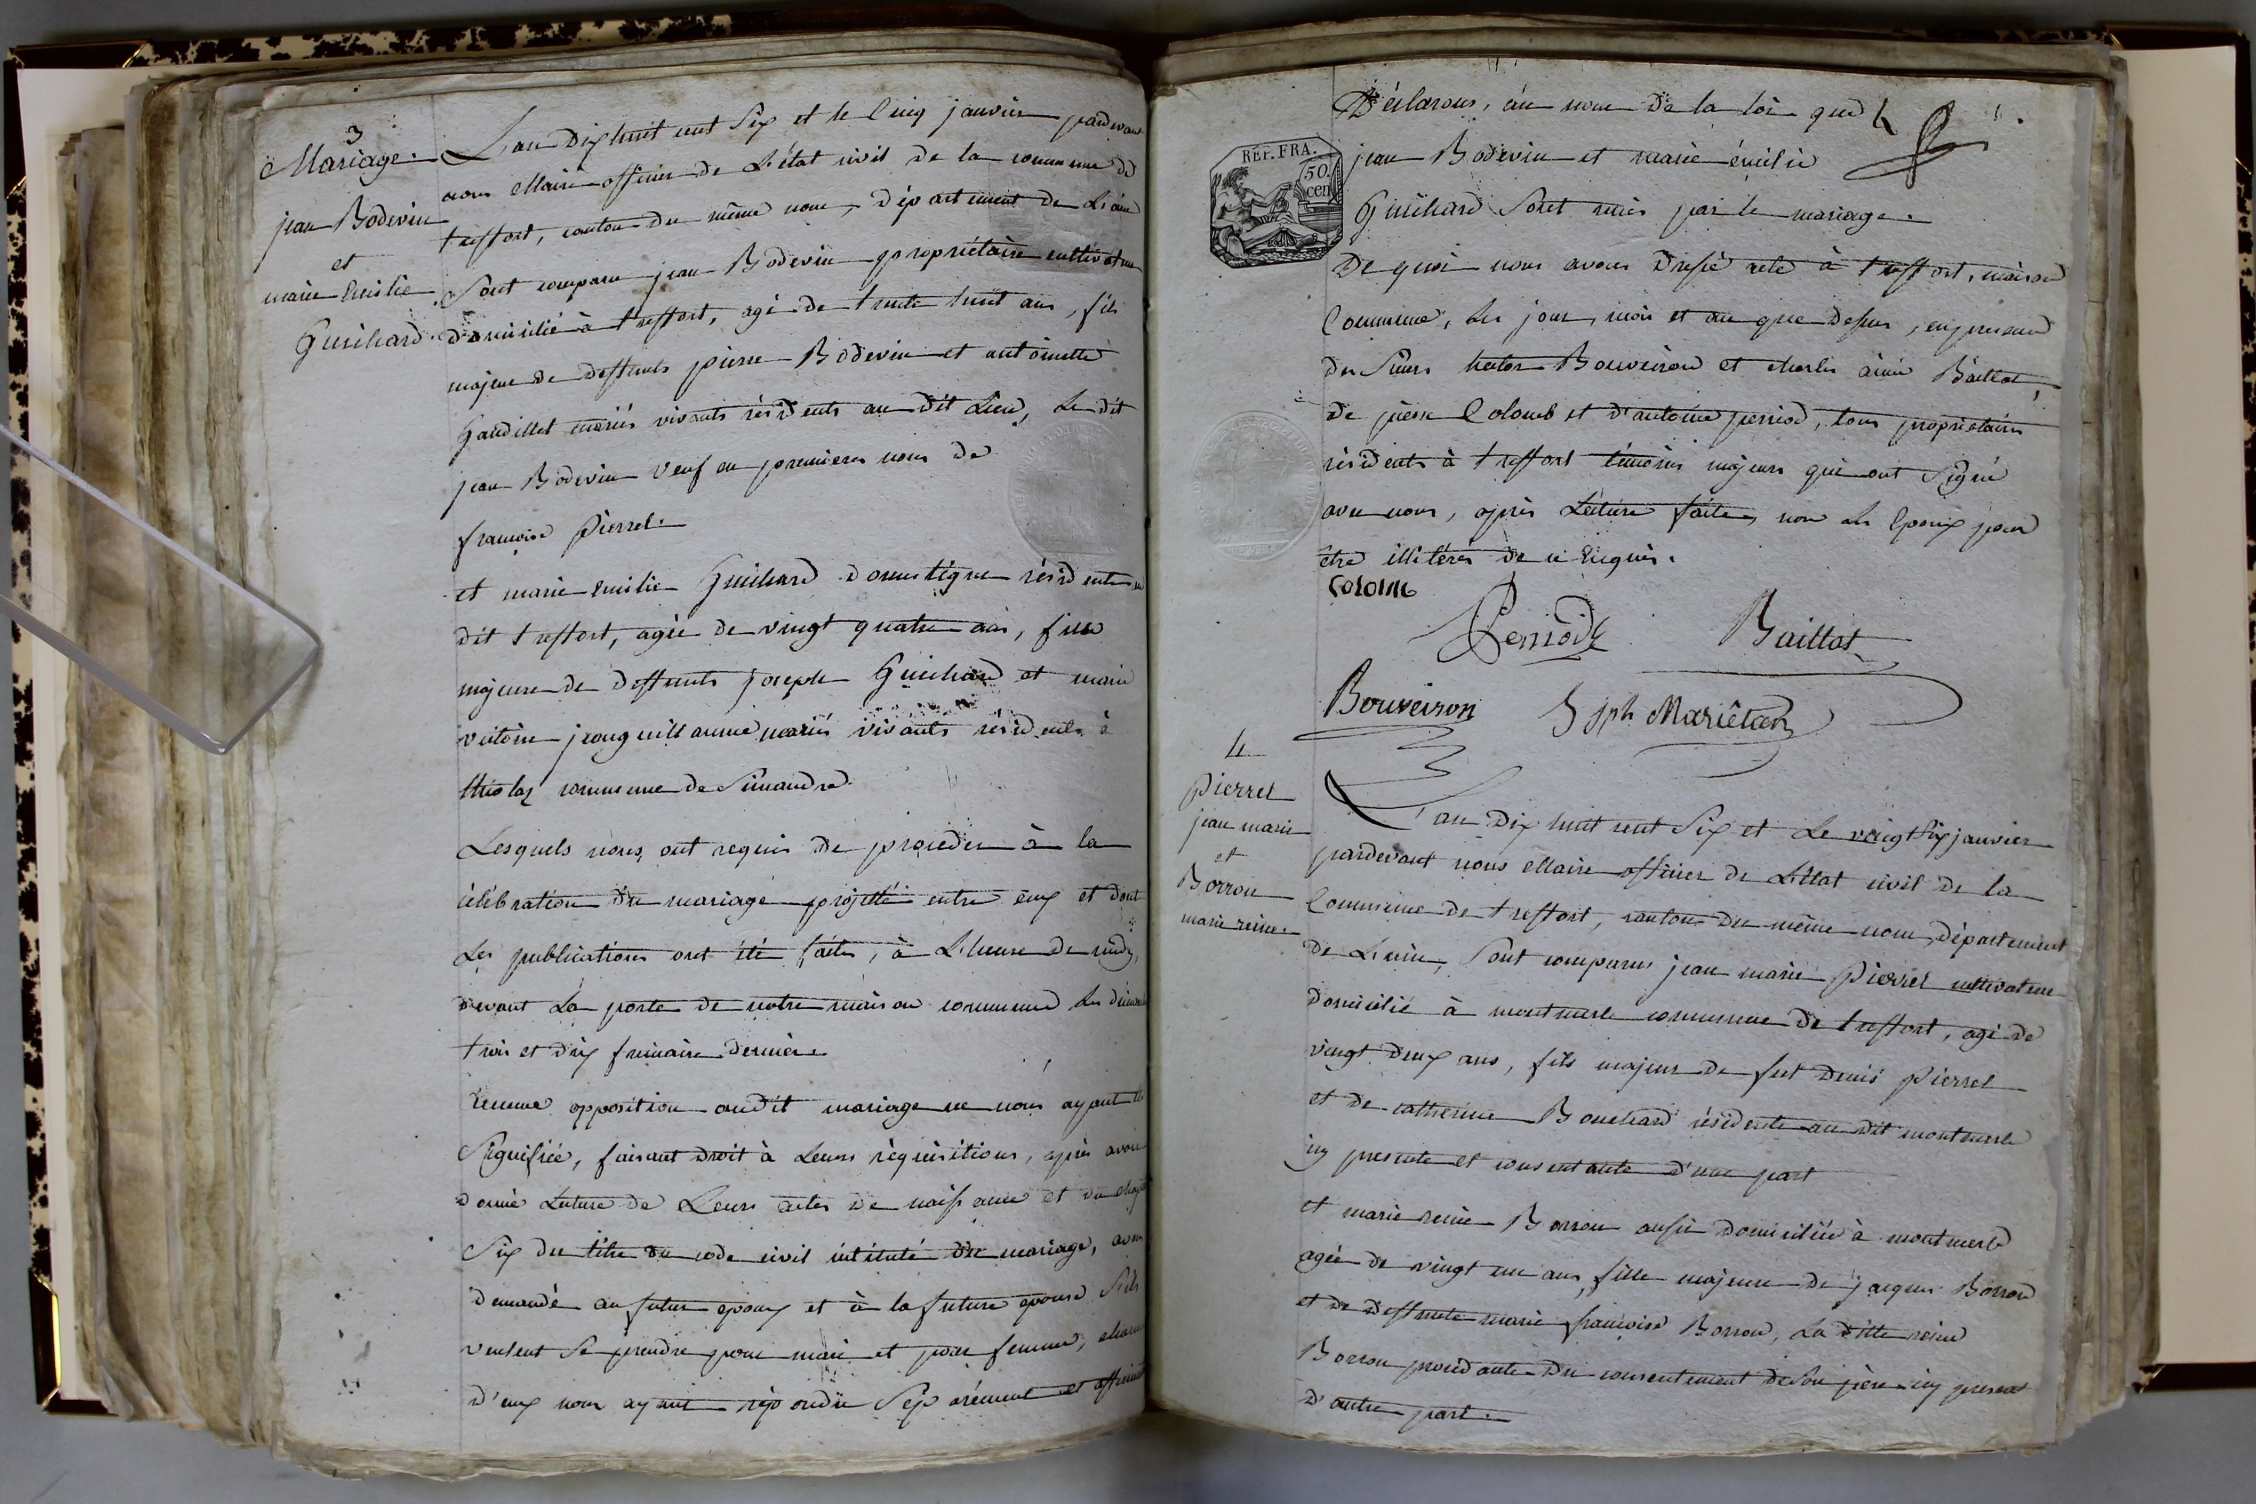 3
Mariage.
jean Bodevin
et
marie Emilie
Guichard.
L'an Dix huit cent Six et le Cinq janvier pardevant
nous Maire officier de L'état civil de la commune de
treffort, canton du même nom, département de L'ain
Sont comparu jean Bodevin propriétaire cultivateur
domicilié à treffort, agé de trente huit ans, fils
majeur de deffunts pierre Bodevin et antoinette
Gaudillet mariés vivants résidents au dit Lieu, Le dit
jean Bodevin Veuf en premieres noces de
francoise Pierrel.
et marie Emilie Guichard domestique résidente au
dit treffort, agée de vingt quatre ans, fille
majeure de deffunts joseph Guichard et marie
victoire jeanguillaume mariés vivants résidents à
commune de Simandre.
Lesquels nous ont requis de proceder à la
célébration du mariage projetté entre eux et dont
Les publications ont été faites, à L'heure de midy,
devant La porte de notre maison commune Les dimanches
trois et dix frimaire dernier.
aucune opposition audit mariage ne nous ayant été
Signifiée, faisant droit à Leurs réquisitions, après avoir
donné Lecture de Leurs actes de naissance et du chapitre
Six du titre du code civil intitulé du mariage, avons
demandé au futur epoux et à la future epouse S'ils
veulent Se prendre pour mari et pour femme, chacun
d'eux nous ayant répondu Séparément et affirmativement
Déclarons, au nom de la loi que
jean Bodevin et marie émilie
Guichard Sont unis par le mariage.
RÉP. FRA.
50
cen
De quoi nous avons dressé acte à treffort, maison
Commune, Les jour, mois et an que dessus, en presence
des Sieurs hector Bouveiron et charles aimé Baillat,
de pierre Colomb et d'antoine perriod, tous propriétaires
résidents à treffort témoins majeurs qui ont Signé
avec nous, après Lecture faite, non Les Epoux pour
être illitérés de ce Enquis.
COLOMB
Perriod
Baillat
Bouveiron
Jph Mariêtan
4
Pierrel
jean marie
et
Borron
marie reine.
L'an Dix huit cent Six et Le vingt Six janvier
pardevant nous Maire officier de L'état civil de la
Commune de treffort, canton du même nom, département
de L'ain, Sont comparus jean marie Pierrel cultivateur
domicilié à montmerle commune de treffort, agé de
vingt deux ans, fils majeur de feu denis pierrel
et de catherine Bouchard résidente au dit montmerle
icy presente et consentante d'une part
et marie reine Borron aussi domiciliée à montmerle
agée de vingt un ans, fille majeure de jacques Borron
et de deffunte marie francoise Borron, La ditte reine
Borron procédante du consentement de Son père icy present
d'autre part.